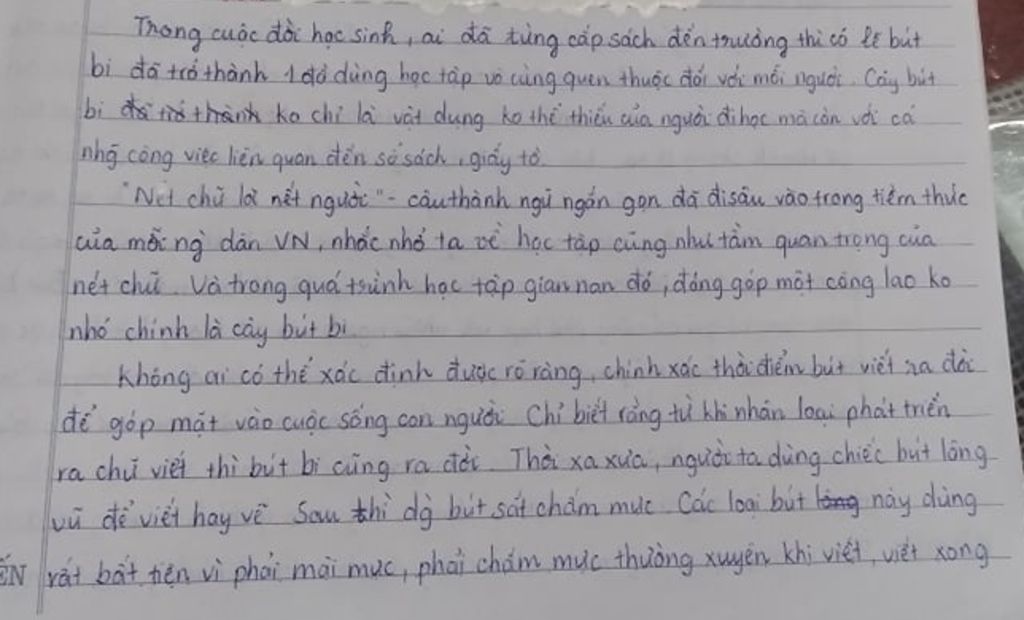 Trong cuộc đời học sinh, ai đã từng cắp sách đến trường thì có lẽ bút
bi đã trở thành 1 đồ dùng học tập vô cùng quen thuộc đối với mỗi người. Cây bút
bi đã trở thành ko chỉ là vật dụng ko thể thiếu của người đi học mà còn với cả
nhg~ công việc liên quan đến sổ sách, giấy tờ.
"Nét chữ là nết người" - câu thành ngữ ngắn gọn đã đi sâu vào trong tiềm thức
của mỗi ng` dân VN, nhắc nhở ta về học tập cũng như tầm quan trọng của
nét chữ. Và trong quá trình học tập gian nan đó, đóng góp một công lao ko
nhỏ chính là cây bút bi
Không ai có thể xác định được rõ ràng, chính xác thời điểm bút viết ra đời
để góp mặt vào cuộc sống con người. Chỉ biết rằng từ khi nhân loại phát triển
ra chữ viết thì bút bi cũng ra đời. Thời xa xưa, người ta dùng chiếc bút lông
vũ để viết hay vẽ. Sau thì dg` bút sắt chấm mực. Các loại bút lông này dùng
rất bất tiện vì phải mài mực, phải chấm mực thường xuyên khi viết, viết xong